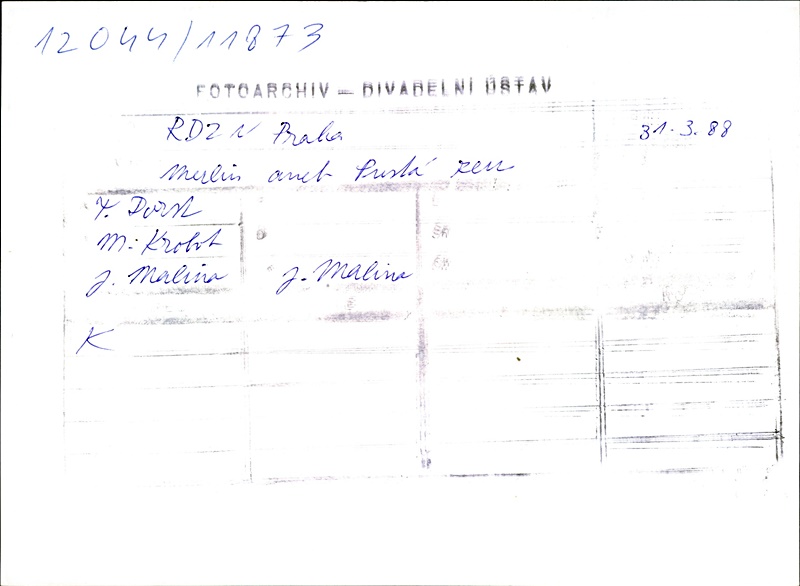 12044/11873
FOTOARCHIV – DIVADELNÍ ÚSTAV
RDZN Praha 31.3.88
Merlin aneb Pustá zem
T. Dorst
M. Krobot
J. Malina J. Malina
K